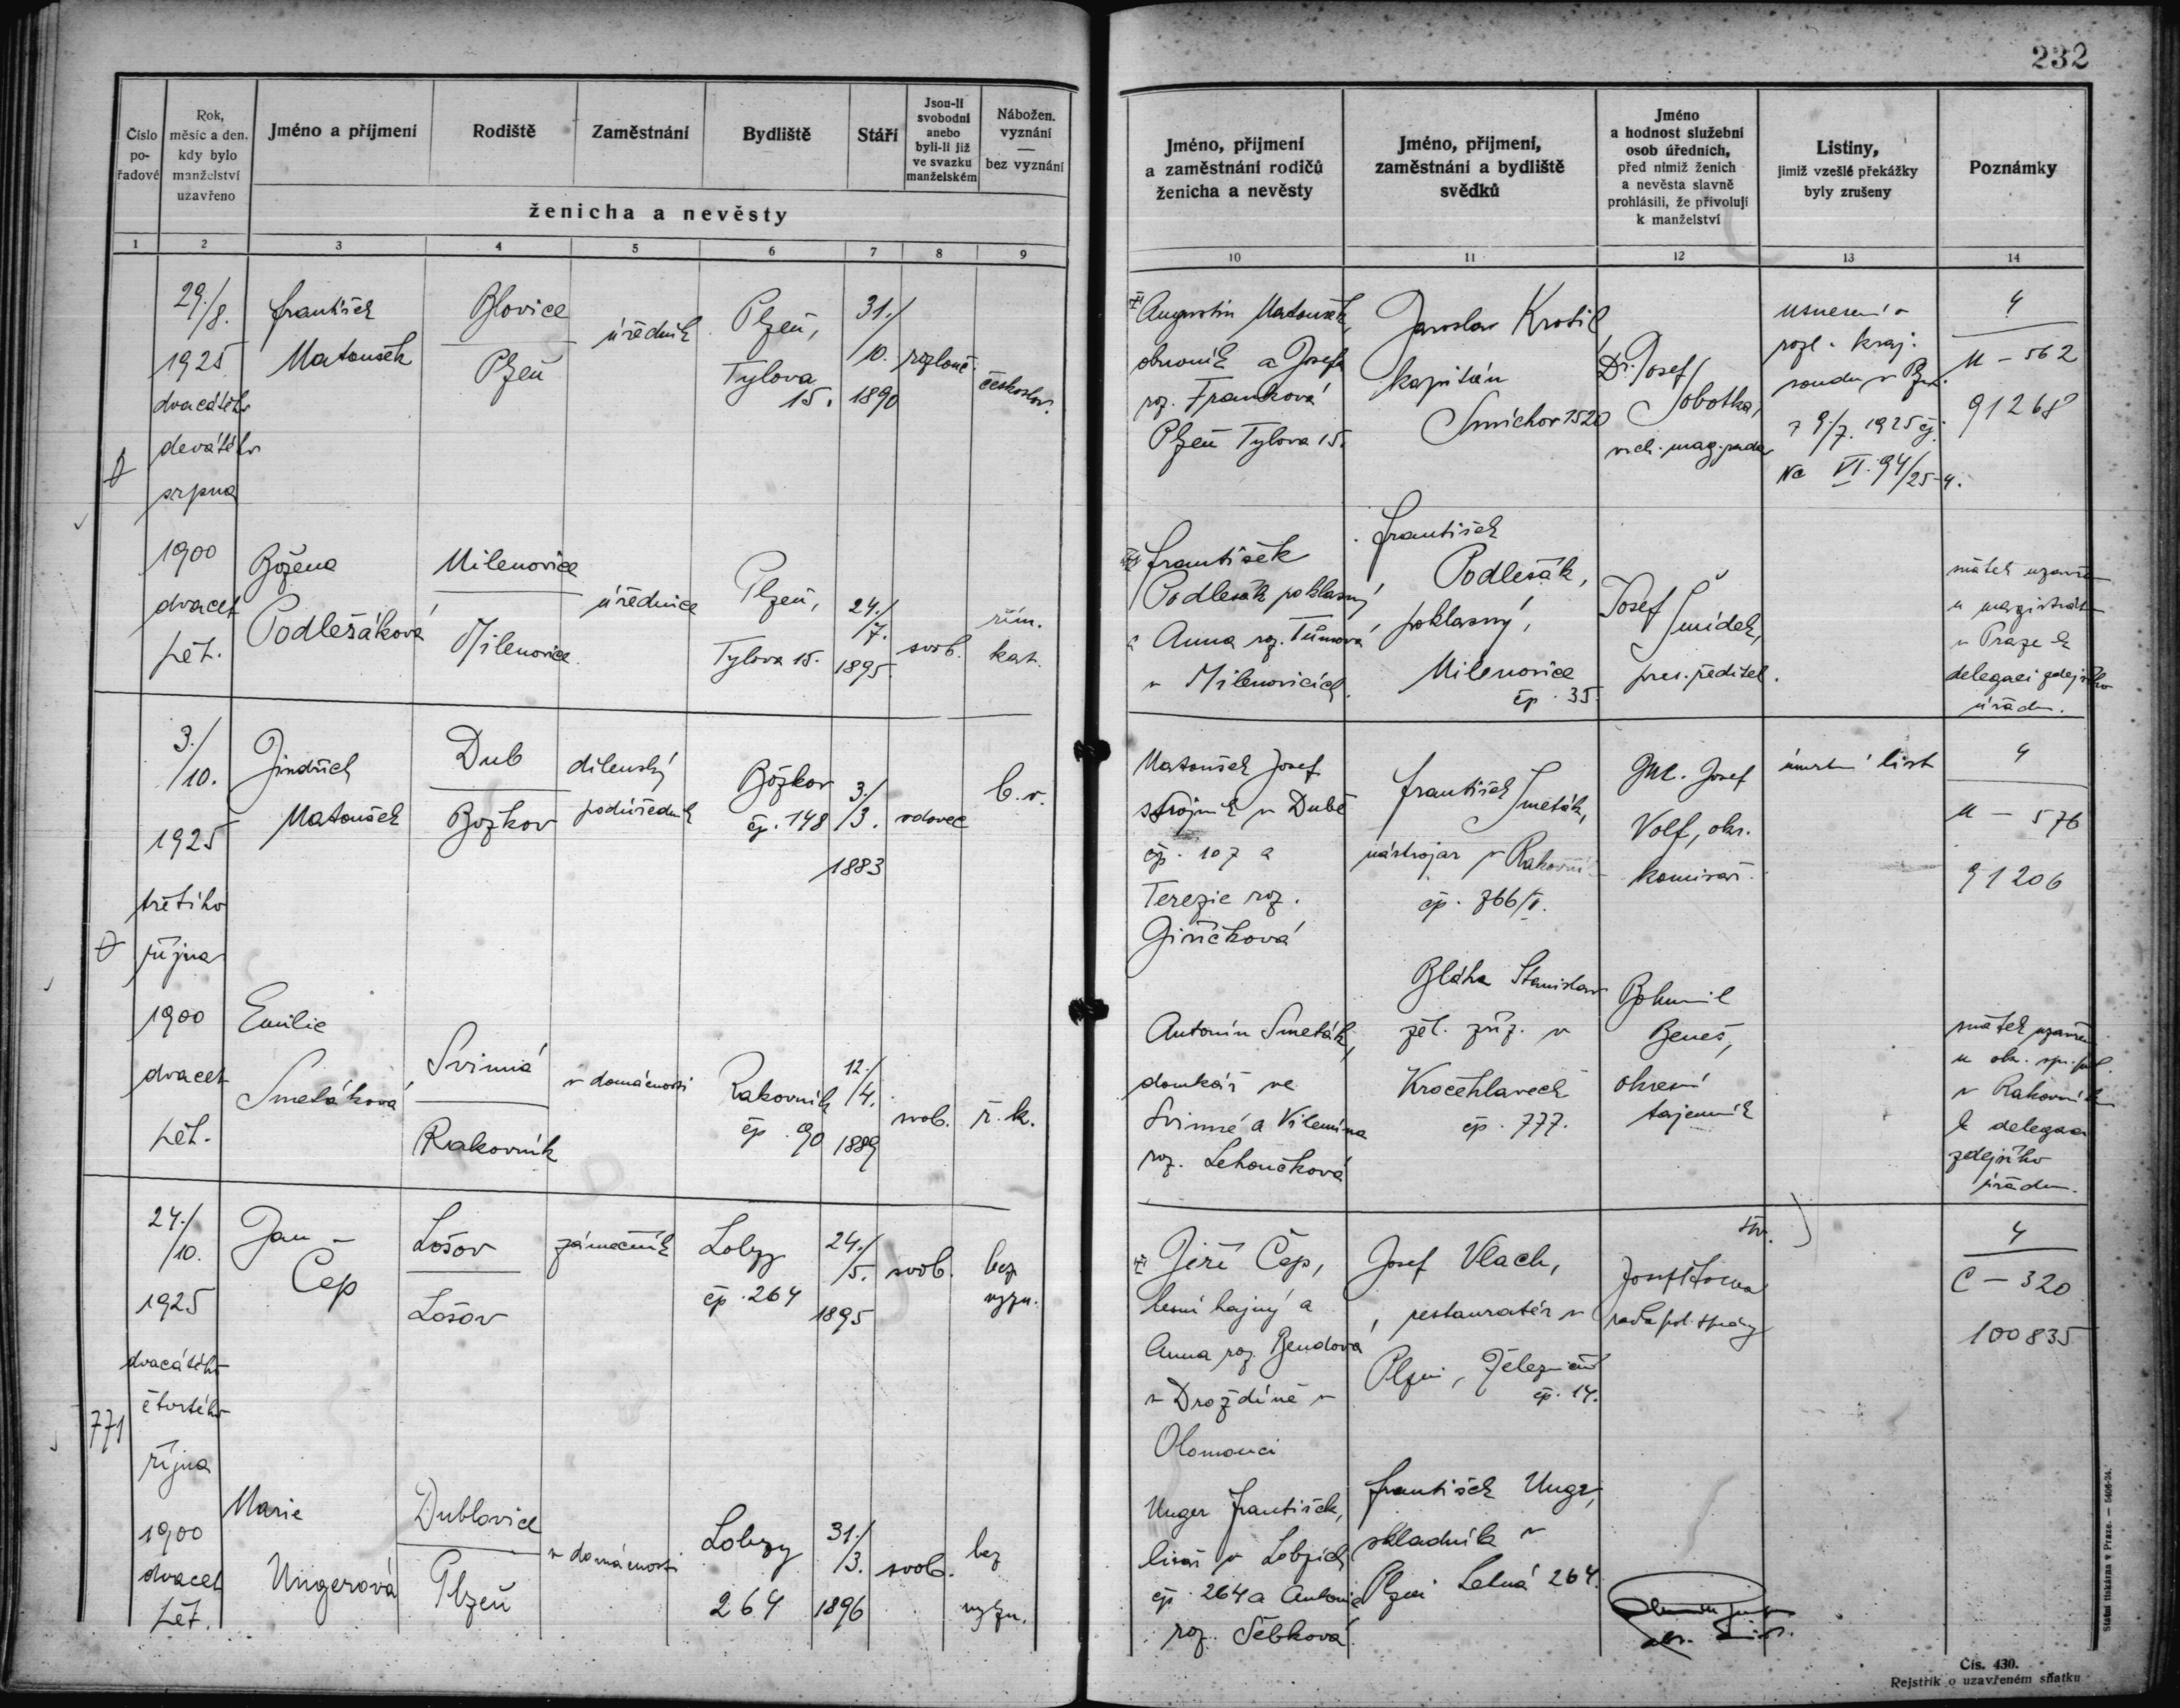 232
Číslo
po-
řadové
Rok,
měsíc a den,
kdy bylo
manželství
uzavřeno
Jméno a příjmení
Rodiště
Zaměstnání
Bydliště
Stáří
Jsou-li
svobodní
anebo
byli-li již
ve svazku
manželském
Nábožen.
vyznání
—
bez vyznání
ženicha a nevěsty
1 2 3 4 5 6 7 8 9
Jméno, příjmení
a zaměstnání rodičů
ženicha a nevěsty
Jméno, příjmení,
zaměstnání a bydliště
svědků
Jméno
a hodnost služební
osob úředních,
před nimiž ženich
a nevěsta slavně
prohlásili, že přivolují
k manželství
Listiny,
jimiž vzešlé překážky
byly zrušeny
Poznámky
10 11 12 13 14
29./8.
1925
dvacátého
devátého
srpna
1900
dvacet
pět.
František
Matoušek
Blovice
Plzeň
úředník
Plzeň,
Tylova
15.
31./
/10.
1890
rozlouč.
českoslov.
Augustin Matoušek,
obuvník a Josefa
roz. Franková
Plzeň Tylova 15.
Jaroslav Krotil,
kapitán
Smíchov 1520
Dr. Josef
Sobotka,
vrch. mag. rada
usnesení o
rozl. kraj.
soudu v Plz.
z 9./7. 1925 čj.
Nc VI. 94/25-4.
4
M – 562
91268
Božena
Podlešáková
Milenovice
Milenovice
úřednice
Plzeň,
Tylova 15.
24./
/7.
1895.
svob.
řím.
kat.
František
Podlešák poklasný,
a Anna roz. Tůmová
v Milenovicích.
František
Podlešák,
poklasný,
Milenovice
čp. 35.
Josef
Šmídek,
pres. ředitel.
sňatek uzavřen
u magistrátu
v Praze k
delegaci zdejšího
úřadu.
3./
/10.
1925
třetího
října
1900
dvacet
pět.
Jindřich
Matoušek
Dub
Božkov
dílenský
podúředník
Božkov
čp. 148
3./
/3.
1883
vdovec
b. v.
Matoušek Josef
strojník v Dubě
čp. 107 a
Terezie roz.
Giričková
František Smeták,
nástrojař v Rakovní-
čp. 766/II.
Josef
Volf, okr.
komisař.
úmrtní list
4
M – 576
91206
Emilie
Smetáková
Svinná
Rakovník
v domácnosti
Rakovník
čp. 90
12./
/4.
1889
svob.
ř. k.
Antonín Smeták,
domkář ve
Svinné a Vilemína
roz. Lehoučková
Bláha Stanislav
žel. zříz. v
Kročehlavech
čp. 777.
Bohumil
Beneš,
okresní
tajemník
sňatek uzavřen
u okr. spr. pol.
v Rakovníku
k delegaci
zdejšího
úřadu.
771
24./
/10.
1925
dvacátého
čtvrtého
října
1900
dvacet
pět.
Jan
Čep
Lošov
Lošov
zámečník
Lobzy
čp. 264
24./
/5.
1895
svob.
bez
vyzn.
Jiří Čep,
lesní hajný a
Anna roz. Bendová
v Droždíně v
Olomouci
Josef Vlach,
restauratér v
Plzni, Železniční
čp. 14.
Josef
rada pol. správy
4
C – 320
100835
Marie
Ungerová
Dublovice
Plzeň
v domácnosti
Lobzy
264
31./
/3.
1896
svob.
bez
vyzn.
Unger František,
lisař v Lobzích
čp. 264 a Antonie
roz. Šebková
František Unger,
skladník v
Plzni Letná 264.
Státní tiskárna v Praze. — 5406-24.
Čís. 430.
Rejstřík o uzavřeném sňatku